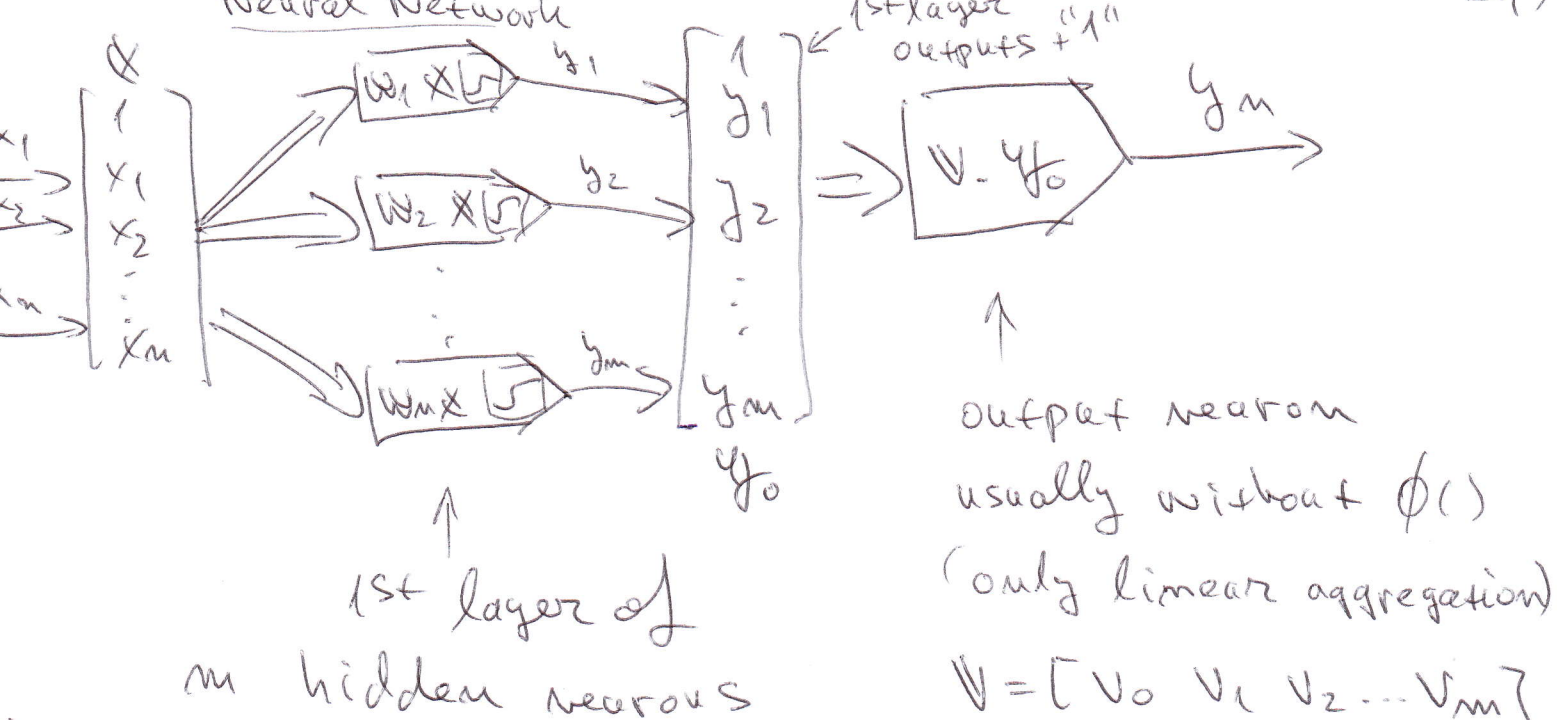 Neural Network
1st layer
outputs + "1"
x
1
x1
x2
⋮
xn
x1
xn
w1 x
w2 x
wm x
y1
y2
ym
1
y1
y2
⋮
ym
y0
V · y0
yn
1st layer of
m hidden neurons
output neuron
usually without ϕ()
(only linear aggregation)
V = [v0 v1 v2 ... vm]